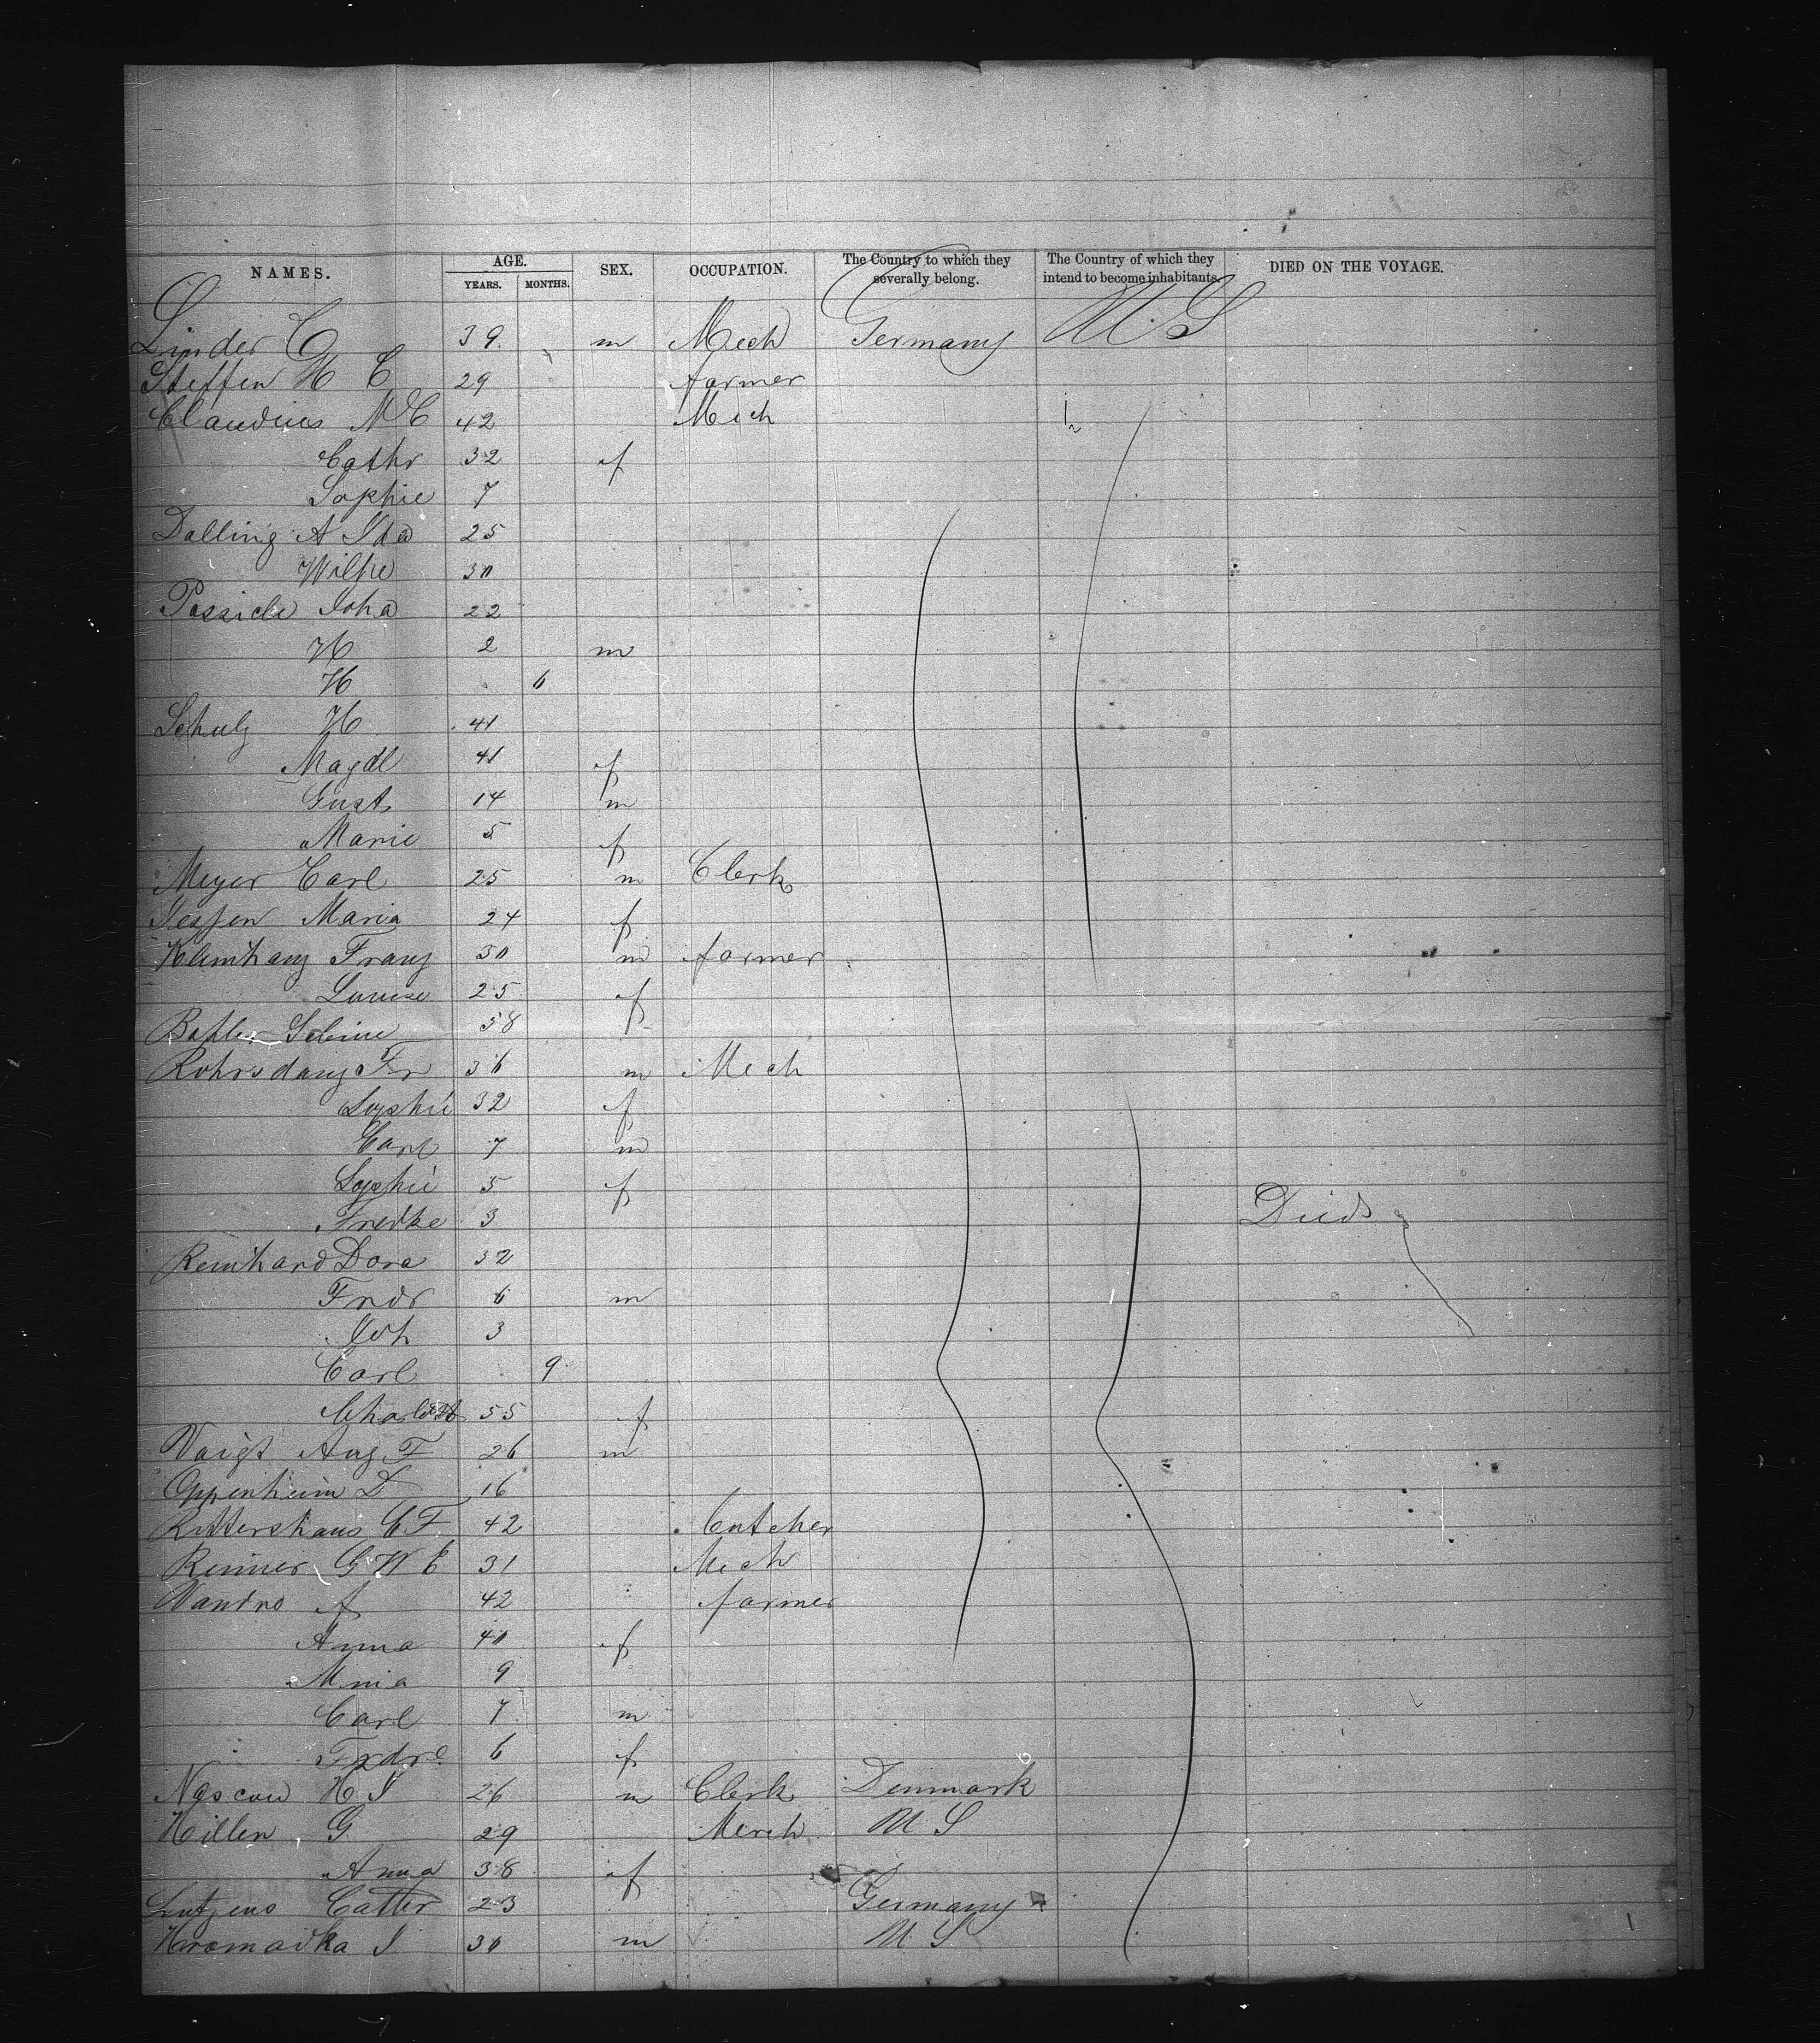 NAMES. AGE. YEARS. MONTHS. SEX. OCCUPATION. The Country to which they severally belong. The Country of which they intend to become inhabitants. DIED ON THE VOYAGE.
Linder C 39 m Mech Germany U.S
Steffen H C 29 farmer
Claudius M C 42 Mech
Cathr 32 f
Sophie 7
Dalling A Ida 25
Wilhe 30
Joha 22
H 2 m
H 6
Schulz H 41
Magdl 41 f
Gust 14 m
Marie 5 f
Meyer Carl 25 m Clerk
Jessen Maria 24 f
Franz 30 m farmer
Louise 25 f
58
Fr 36 m Mech
Sophie 32 f
Carl 7 m
Sophie 5 f
Fredke 3 Died
Reinhard Dora 32
Fridr 6 m
Joh 3
Carl 9
Charlott 55 f
Voigt Aug F 26 m
Oppenheim D 16
Rittershaus C F 42 butcher
Renner G W C 31 Mech
A 42 farmer
Anna 40 f
Mnia 9
Carl 7 m
Frdre 6 f
H J 26 m Clerk Denmark
Hillen G 29 Merch U S
Anna 38 f
23 Germany
J 30 m U S